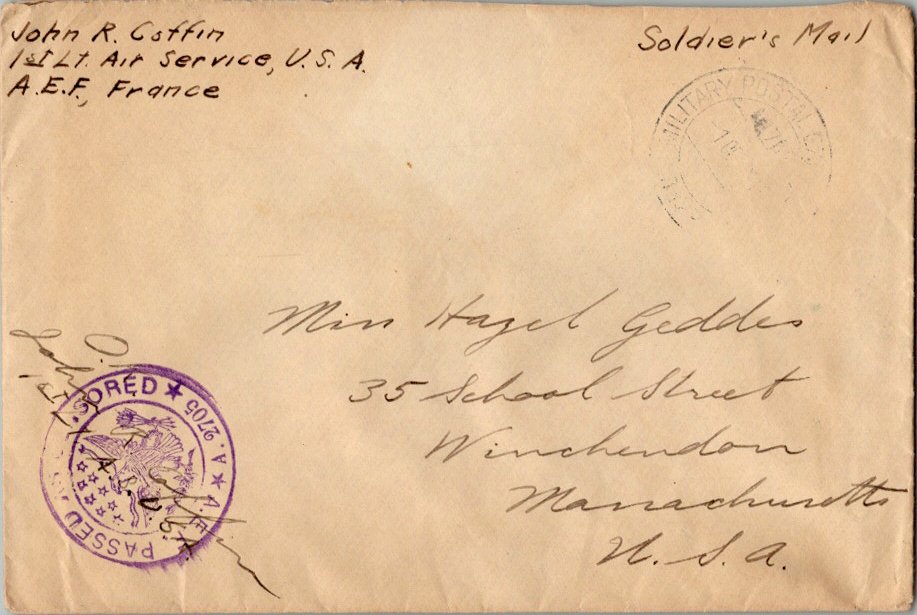 John R. Coffin
1st Lt. Air Service, U.S.A.
A.E.F., France
Soldier's Mail
MILITARY POSTAL
Miss Hazel Geddes
35 School Street
Winchendon
Massachusetts
U.S.A.
O.K.
John R. Coffin
1st Lt. A.S. U.S.A.
PASSED AS CENSORED ★ A. 2705 ★ A.E.F.